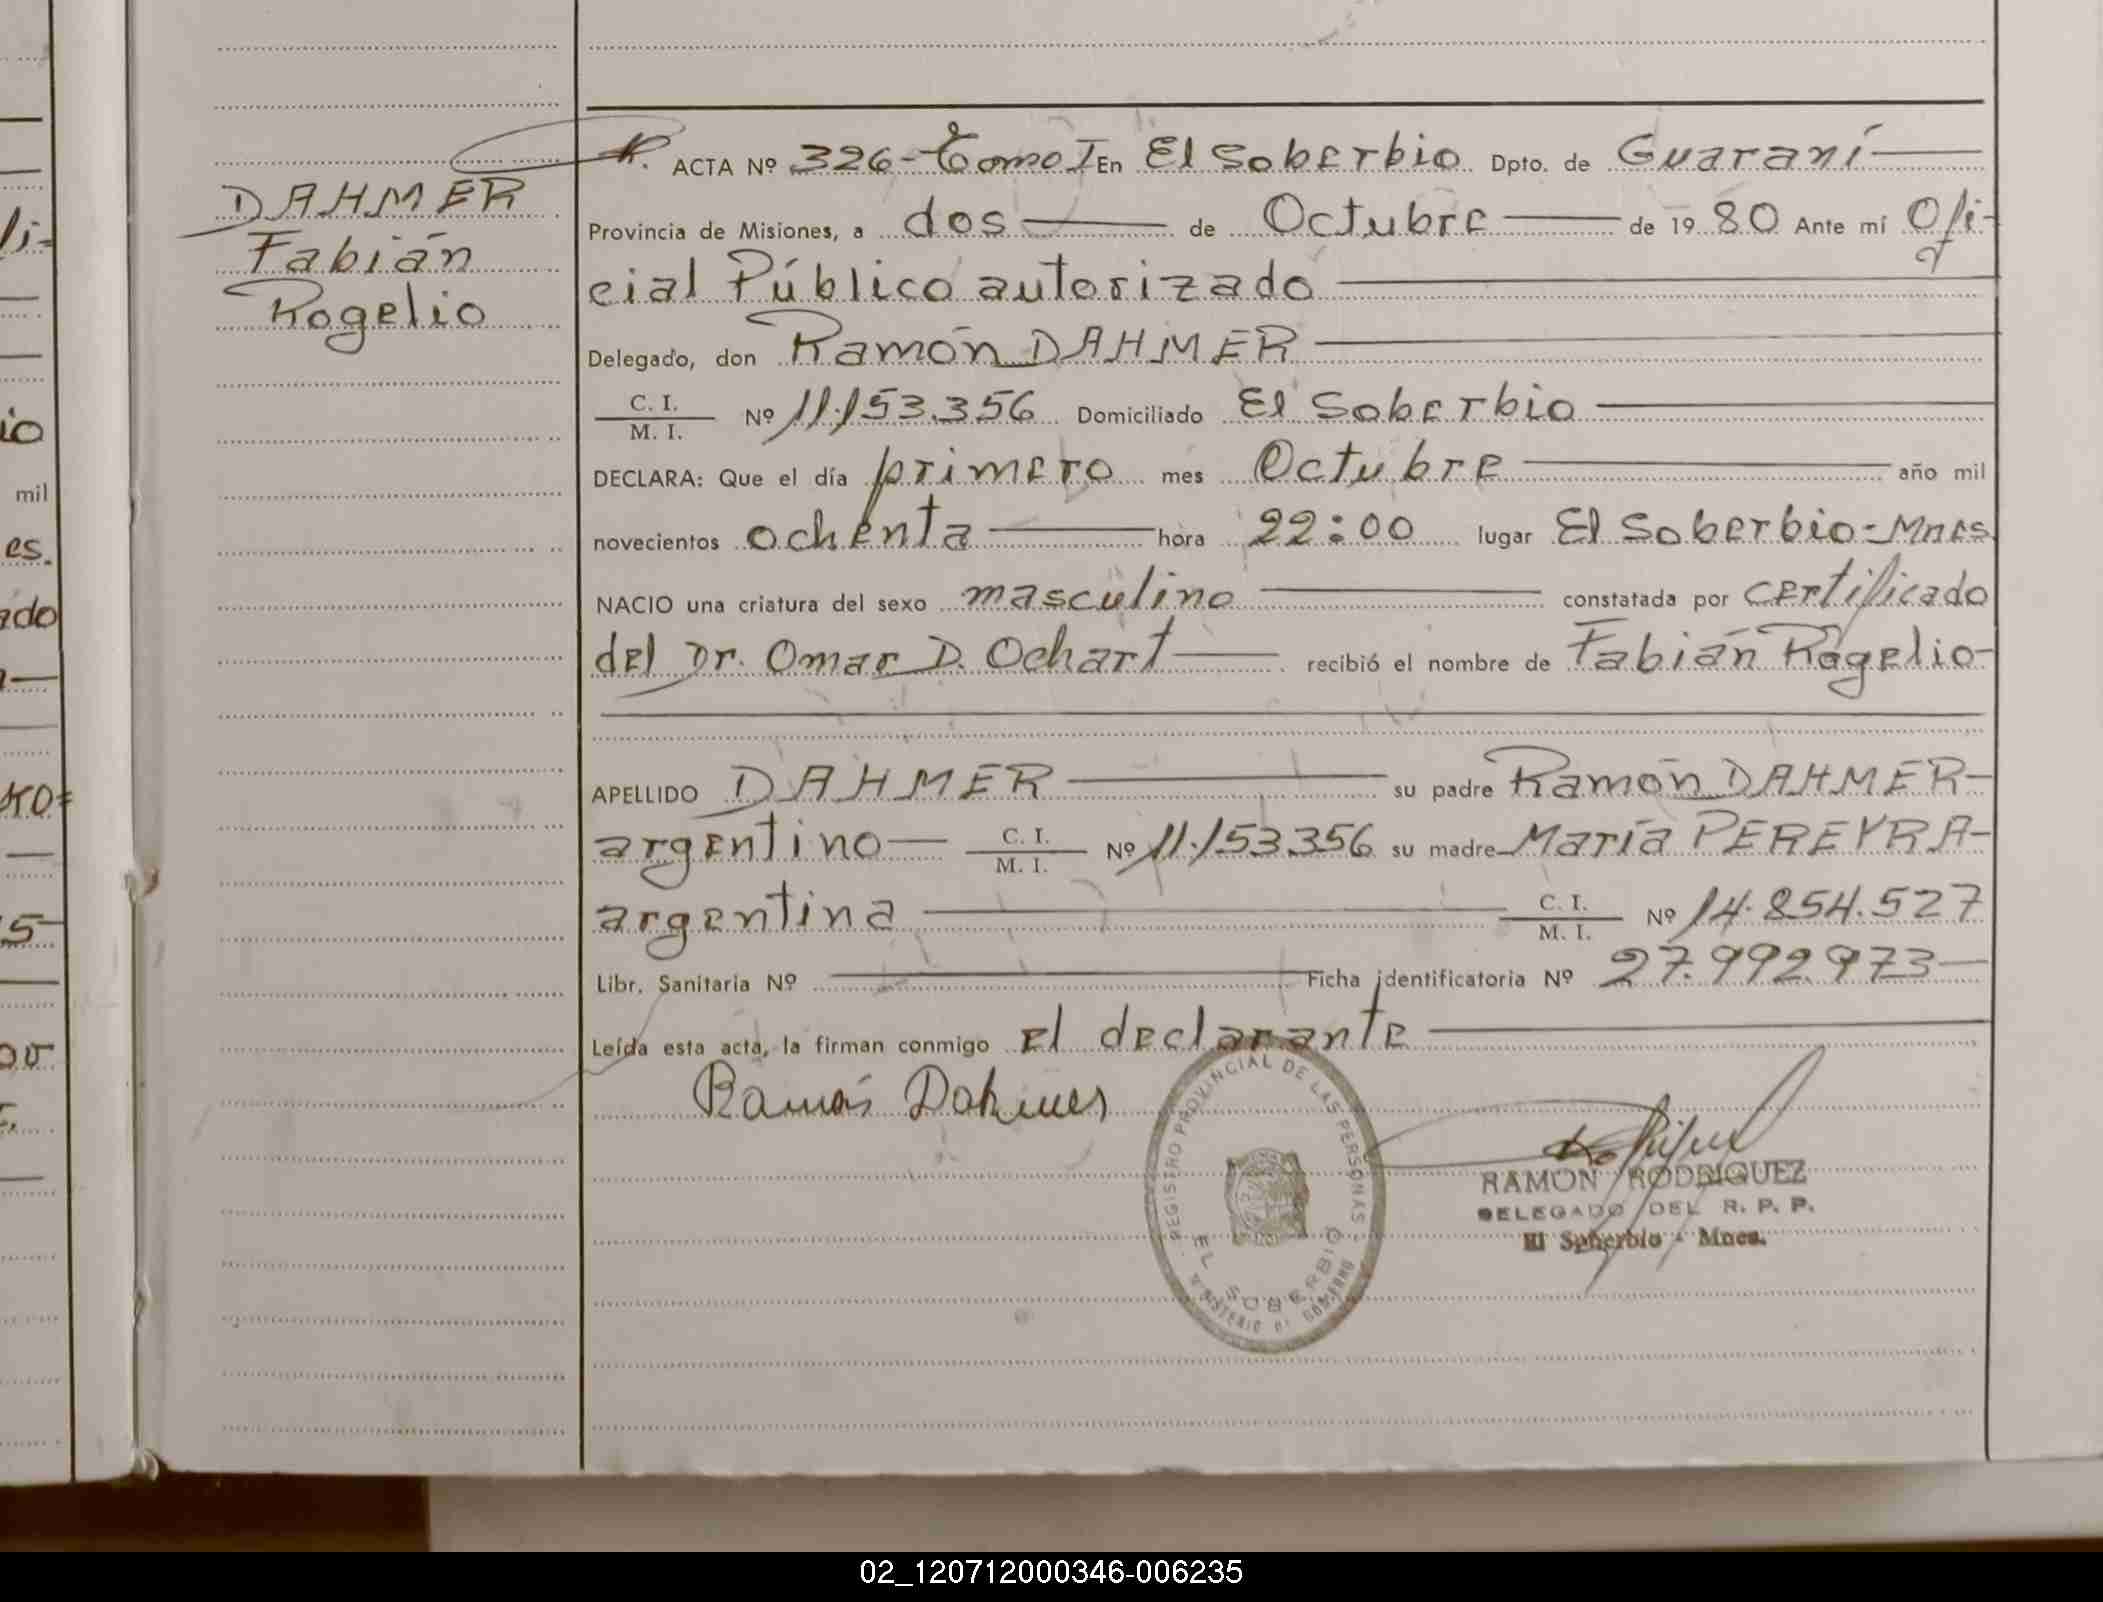 DAHMER
Fabián
Rogelio
ACTA Nº 326-Tomo I En El Soberbio Dpto. de Guaraní
Provincia de Misiones, a dos de Octubre de 1980 Ante mí Ofi-
cial Público autorizado
Delegado, don Ramón DAHMER
C. I.
M. I. Nº 11.153.356 Domiciliado El Soberbio
DECLARA: Que el día primero mes Octubre año mil
novecientos ochenta hora 22:00 lugar El Soberbio-Mnes
NACIO una criatura del sexo masculino constatada por certificado
del Dr. Omar D. Ochart recibió el nombre de Fabián Rogelio-
APELLIDO DAHMER su padre Ramón DAHMER-
argentino C. I.
M. I. Nº 11.153.356 su madre María PEREYRA-
argentina C. I.
M. I. Nº 14.854.527
Libr. Sanitaria Nº Ficha identificatoria Nº 27.992.973
Leída esta acta, la firman conmigo el declarante
Ramón Dahmer
REGISTRO PROVINCIAL DE LAS PERSONAS
EL SOBERBIO
MINISTERIO DE GOBIERNO
RAMON RODRIGUEZ
DELEGADO DEL R. P. P.
El Soberbio - Mnes.
mil
es.
ado
02_120712000346-006235